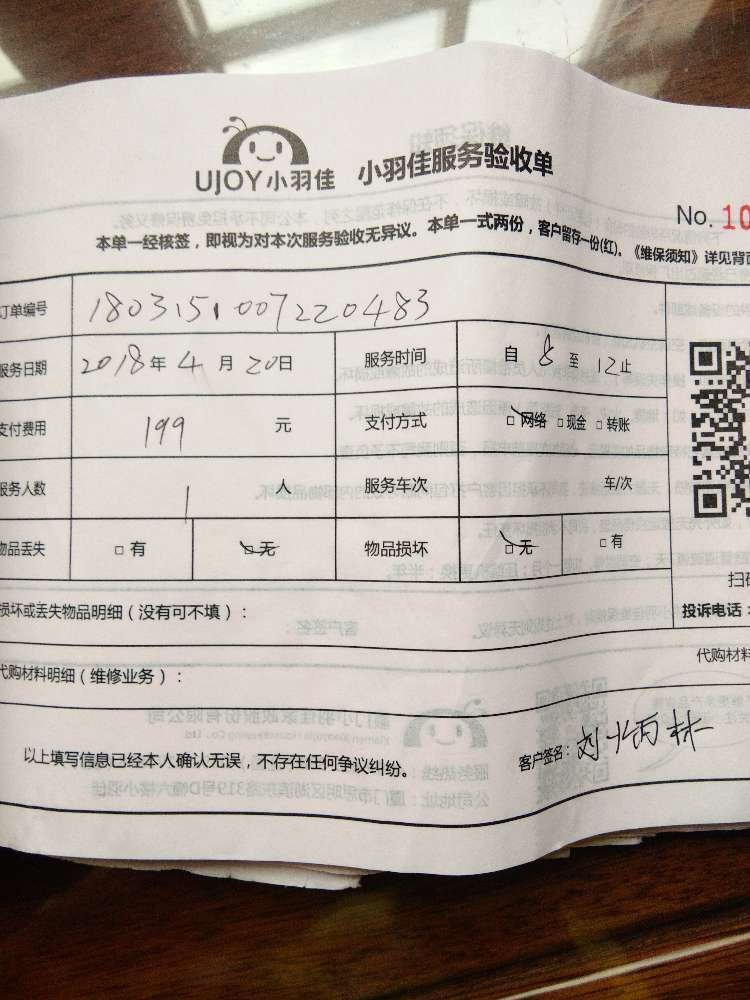 UJOY小羽佳 小羽佳服务验收单
No. 10
本单一经核签，即视为对本次服务验收无异议。本单一式两份，客户留存一份(红)。《维保须知》详见背面
订单编号 1803151007220483
服务日期 2018年4月20日 服务时间 自8至12止
支付费用 199 元 支付方式 □网络 □现金 □转账
服务人数 1 人 服务车次 车/次
物品丢失 □有 □无 物品损坏 □无 □有
损坏或丢失物品明细（没有可不填）：
投诉电话：
代购材料明细（维修业务）：
代购材料
以上填写信息已经本人确认无误，不存在任何争议纠纷。
客户签名：刘炳林